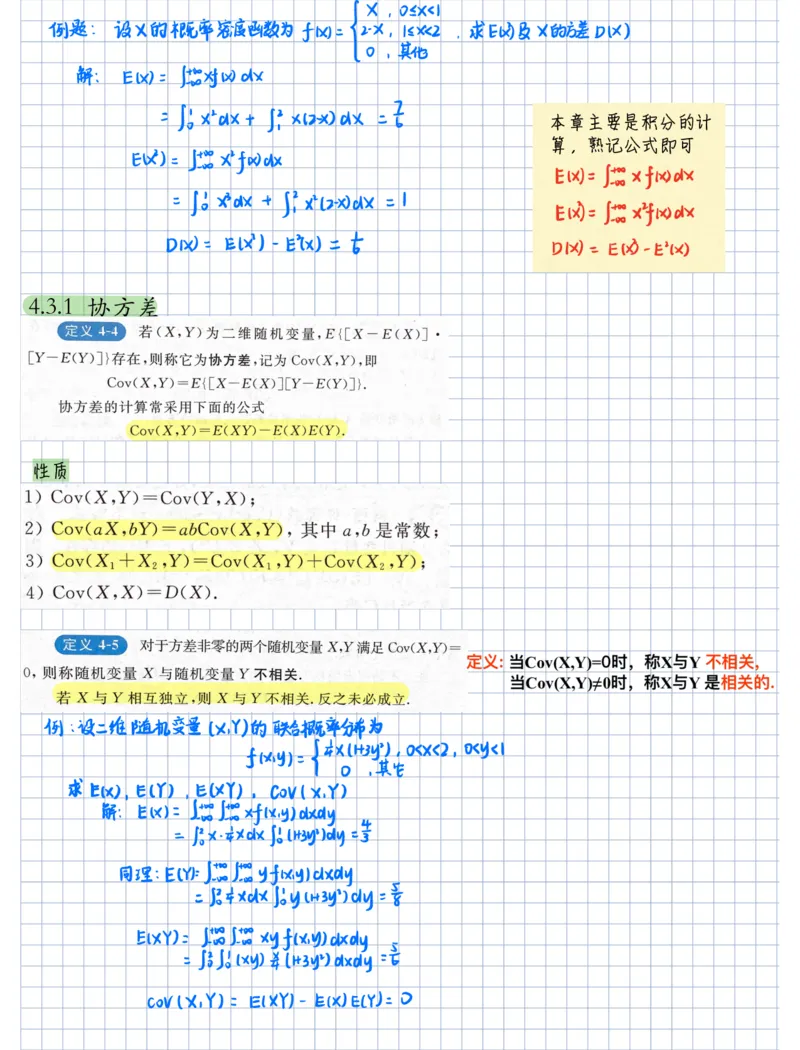 例题: 设X的概率密度函数为 f(x)= { x, 0≤x<1
2-x, 1≤x<2 , 求E(x)及X的方差D(X)
0, 其他
解: E(x)= ∫_{-∞}^{+∞} xf(x)dx
= ∫_0^1 x²dx + ∫_1^2 x(2-x)dx = 7/6
E(x²)= ∫_{-∞}^{+∞} x²f(x)dx
= ∫_0^1 x³dx + ∫_1^2 x²(2-x)dx = 1
D(x)= E(x²)-E²(x) = 1/6
本章主要是积分的计
算, 熟记公式即可
E(x)= ∫_{-∞}^{+∞} xf(x)dx
E(x²)= ∫_{-∞}^{+∞} x²f(x)dx
D(x)= E(x²)-E²(x)
4.3.1 协方差
定义 4-4 若(X,Y)为二维随机变量,E{[X-E(X)]·
[Y-E(Y)]}存在,则称它为协方差,记为 Cov(X,Y),即
Cov(X,Y)=E{[X-E(X)][Y-E(Y)]}.
协方差的计算常采用下面的公式
Cov(X,Y)=E(XY)-E(X)E(Y).
性质
1) Cov(X,Y)=Cov(Y,X);
2) Cov(aX,bY)=abCov(X,Y), 其中 a,b 是常数;
3) Cov(X₁+X₂,Y)=Cov(X₁,Y)+Cov(X₂,Y);
4) Cov(X,X)=D(X).
定义 4-5 对于方差非零的两个随机变量 X,Y 满足 Cov(X,Y)=
0,则称随机变量 X 与随机变量 Y 不相关.
若 X 与 Y 相互独立,则 X 与 Y 不相关.反之未必成立.
定义: 当Cov(X,Y)=0时，称X与Y 不相关,
当Cov(X,Y)≠0时，称X与Y 是相关的.
例:设二维随机变量(X,Y)的联合概率分布为
f(x,y)= { 1/4x(1+3y²), 0<x<2, 0<y<1
0 , 其它
求 E(x), E(Y), E(XY), COV(X,Y)
解: E(x)= ∫_{-∞}^{+∞}∫_{-∞}^{+∞} xf(x,y)dxdy
= ∫_0^2 x·1/4xdx ∫_0^1 (1+3y²)dy = 4/3
同理: E(Y)= ∫_{-∞}^{+∞}∫_{-∞}^{+∞} yf(x,y)dxdy
= ∫_0^2 1/4xdx ∫_0^1 y(1+3y²)dy = 5/8
E(XY)= ∫_{-∞}^{+∞}∫_{-∞}^{+∞} xyf(x,y)dxdy
= ∫_0^2∫_0^1 (xy) x/4 (1+3y²)dxdy = 5/6
COV(X,Y)= E(XY)-E(X)E(Y)=0